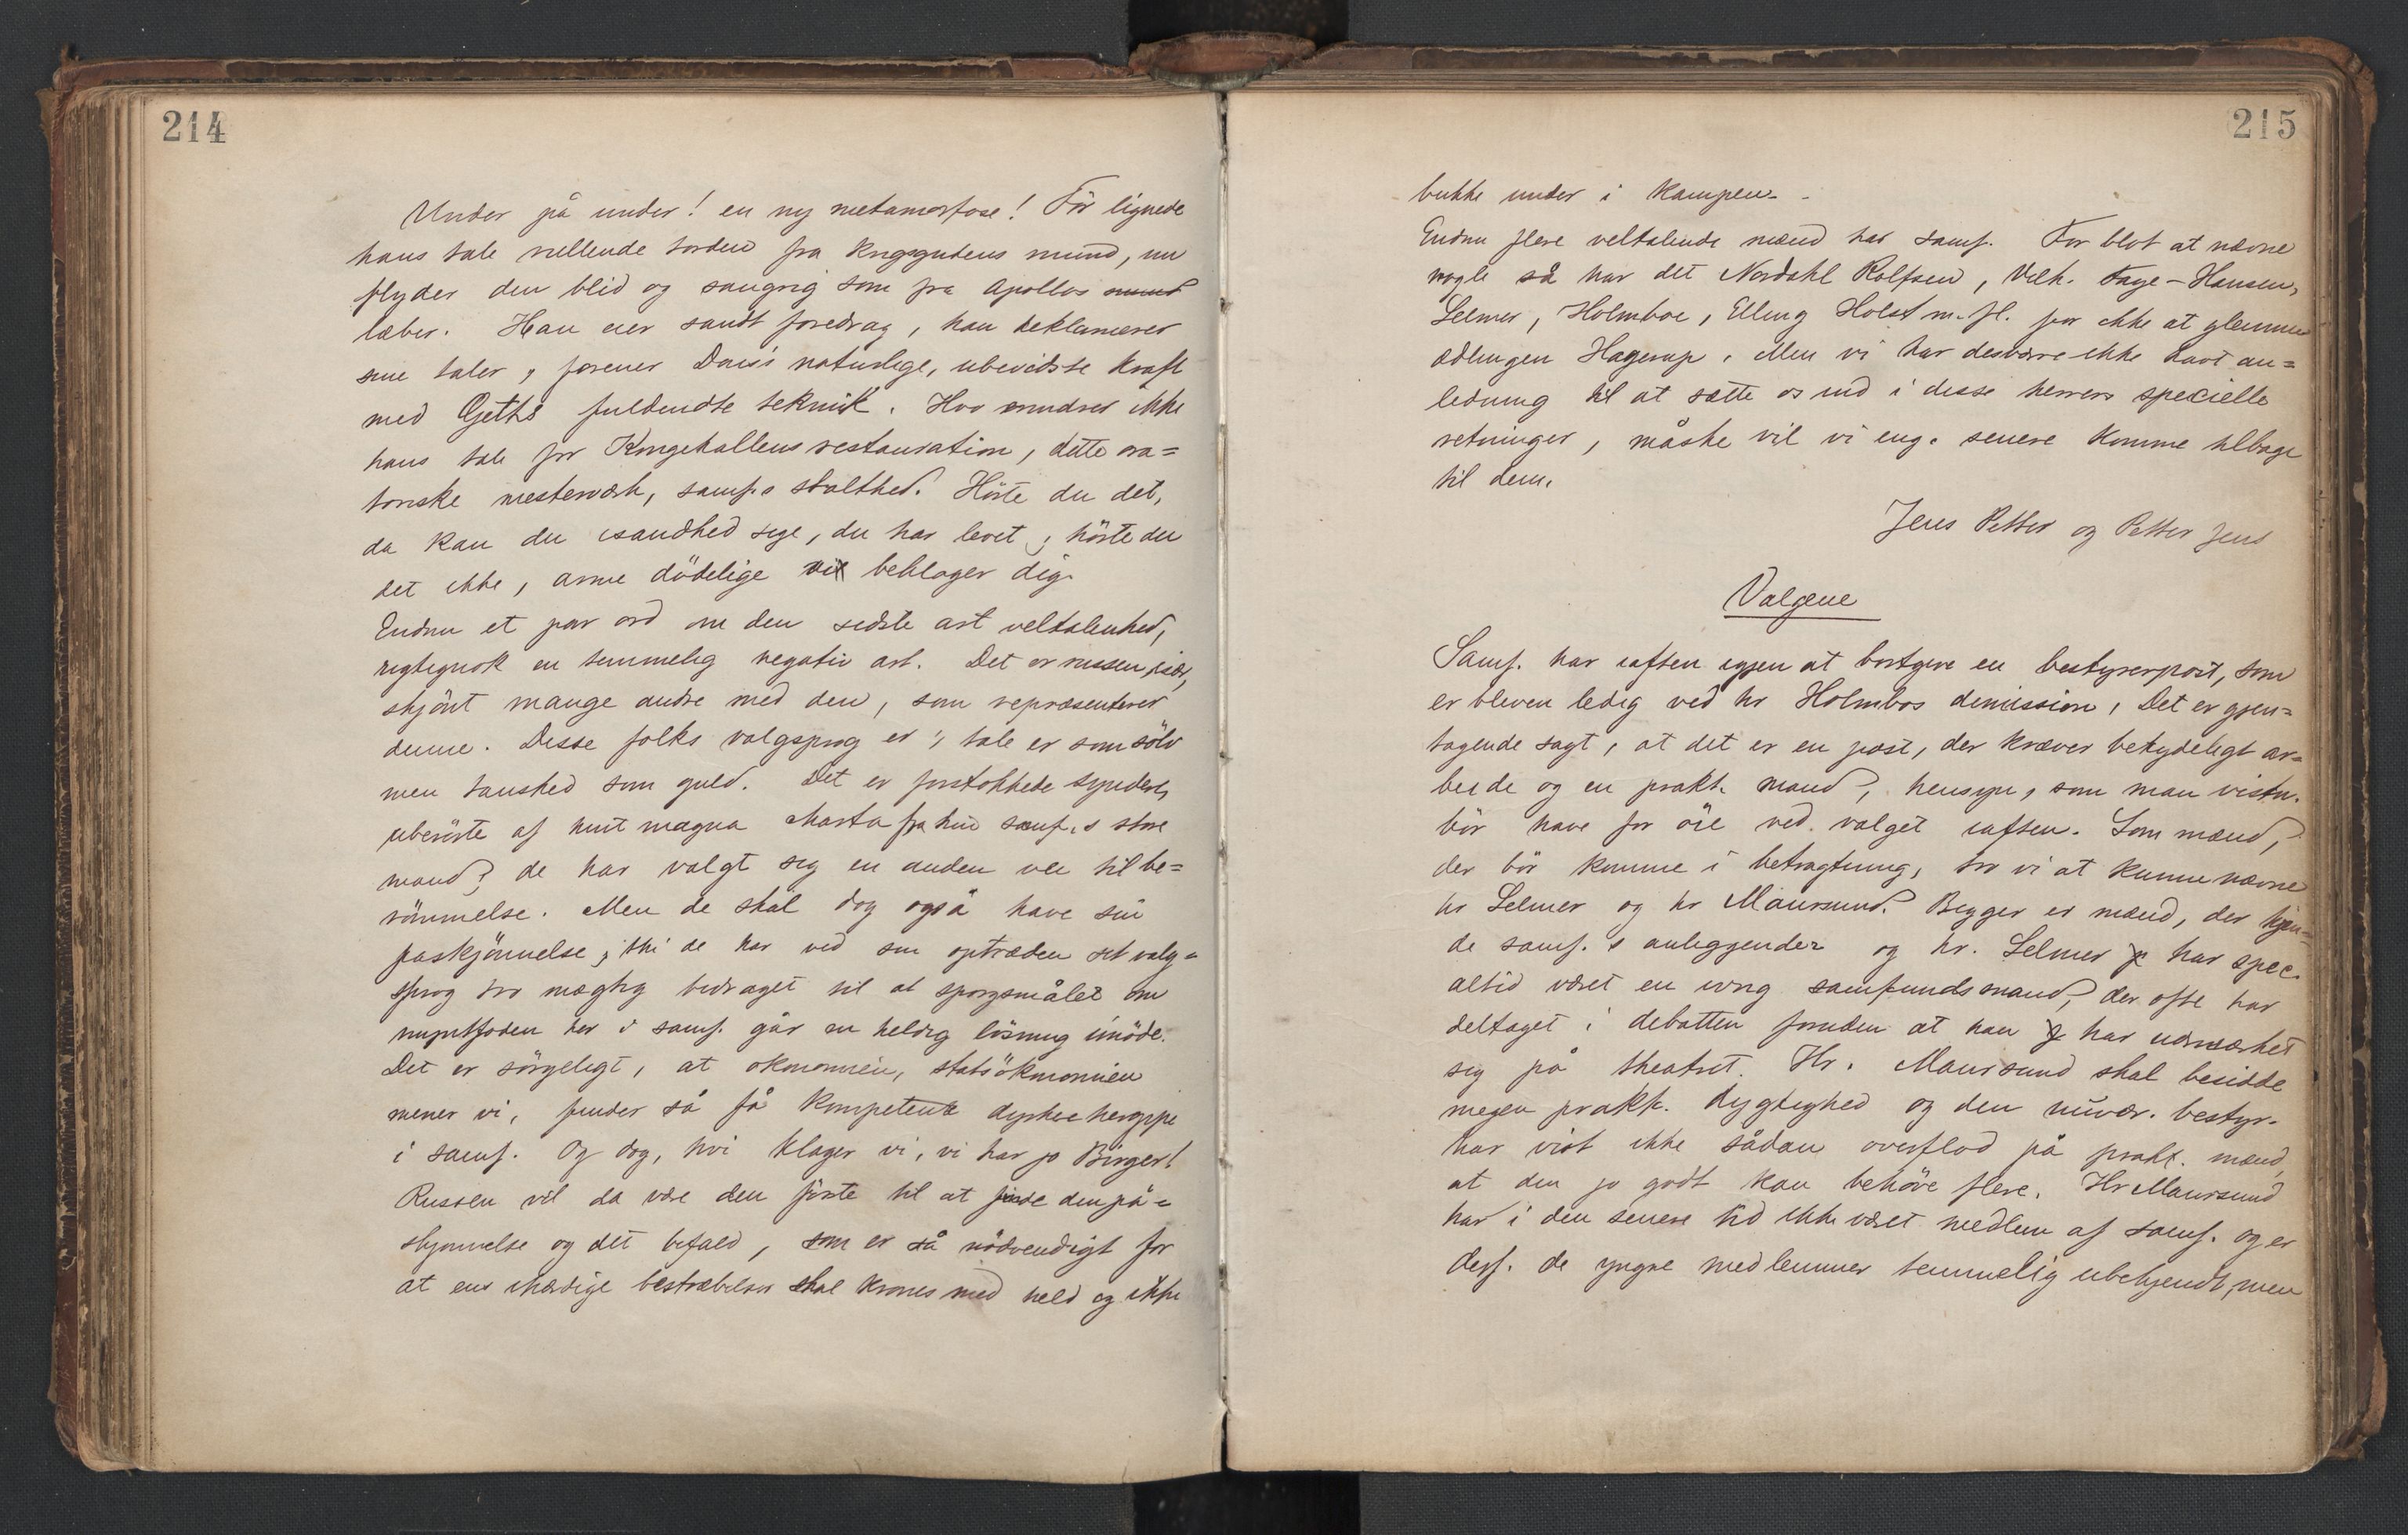 214
Under på under! en ny metamorfose! Før lignede
hans tale rullende torden fra krigsgudens mund, nu
flyder den blid og sangrig som fra Apollos mund
læber. Han eier sandt foredrag, han deklamerer
sine taler, forener Davis naturlige, ubevidste kraft
med Gjeths fuldendte teknik. Hvo erindrer ikke
hans tale for Kongehallens restauration, dette ora=
toriske mesterværk, samf.s stolthed. Hörte du det,
da kan du isandhed sige, du har levet; hörte du
det ikke, arme dödelige vi beklager dig.
Endnu et par ord om den sidste art veltalenhed,
rigtignok en temmelig negativ art. Det er russen især,
skjönt mange andre med den, som repræsenterer
denne. Disse folks valgsprog er; tale er som sölv
men taushed som guld. Det er forstokkede syndere,
uberörte af hint magna charta fra hin samf.s store
mand; de har valgt sig en anden vei til be=
römmelse. Men de skal dog også have sin
påskjönnelse; thi de har ved sin optræden sit valg=
sprog tro mægtig bidraget til at spörgsmålet om
myntfoden her i samf. går en heldig lösning imöde.
Det er sörgeligt, at økonomien, statsökonomien
mener vi, finder så få kompetente dyrkere heroppe
i samf. Og dog, hvi klager vi, vi har jo Birger!
Russen vil da være den förste til at finde den på=
skjönnelse og det bifald, som er så nödvendigt for
at ens ihærdige bestræbelser skal krones med held og ikke
215
bukke under i kampen.
Endnu flere veltalende mænd har samf. For blot at nævne
nogle så har det Nordahl Rolfsen, Vilh. Faye-Hansen,
Selmer, Holmboe, Elling Holst m.fl. for ikke at glemme
ædlingen Hagerup. Men vi har desværre ikke havt an=
ledning til at sætte os ind i disse herrers specielle
retninger, måske vil vi eng. senere komme tilbage
til dem.
Jens Petter og Petter Jens
Valgene
Samf. har iaften igjen at bortgive en bestyrerpost, som
er bleven ledig ved hr Holmbos demission. Det er gjen=
tagende sagt, at det er en post, der kræver betydeligt ar=
beide og en prakt. mand, hensyn, som man vistn.
bör have for öie ved valget iaften. Som mænd,
der bör komme i betragtning, tro vi at kunne nævne
hr Selmer og hr Maursund. Begge er mænd, der kjen=
de samf.s anliggender og hr. Selmer har spec.
altid været en ivrig samfundsmand, der ofte har
deltaget i debatten foruden at han har udmærket
sig på theatret. Hr. Maursund skal besidde
megen prakt. dygtighed og den nuvær. bestyr.
har vist ikke sådan overflod på prakt. mænd,
at den jo godt kan behöve flere. Hr Maursund
har i den senere tid ikke været medlem af samf. og er
desf. de yngre medlemmer temmelig ubekjendt, men